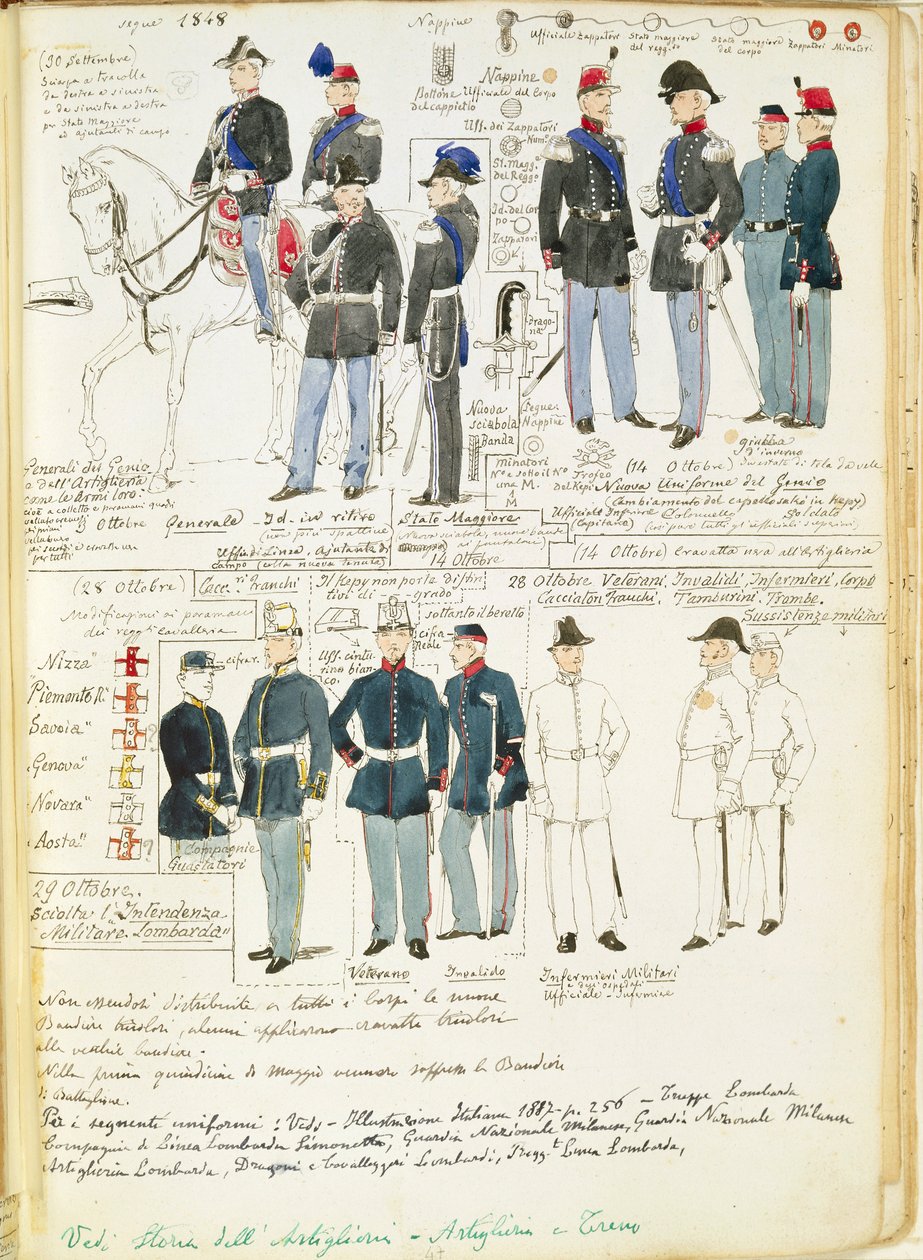 segue 1848
(30 Settembre)
Sciarpa a tracolla
da destra a sinistra
e da sinistra a destra
per Stato Maggiore
ed ajutanti di campo
Nappine
Ufficiale Zappatori
Stato maggiore
del reggto
Stato maggiore
del corpo
Zappatori
Minatori
Bottone
del cappietto
Nappine
Ufficiale del Corpo
Uff. dei Zappatori
Numo
St. Magg.
del Regg.
Id. del Cor
po
Zappatori
Drago
na
Nuova
sciabola
Banda
Segue
Nappine
minatori
No e sotto il No
una M.
1
M
Trofeo
del Kepi
giubba
d'inverno
in estate di tela da vele
(14 Ottobre)
Nuova Uniforme del Genio
(Cambiamento del cappello salvo in Kepy)
Ufficiale Inferiore
(Capitano)
Colonnello
Soldato
(così pure tutti gli ufficiali superiori)
Generali del Genio
e dell'Artiglieria
come le Armi loro:
cioè a colletto e paramani
per tutti
3 Ottobre
Generale - Id. in ritiro
(non più spalline)
Stato Maggiore
(Nuova sciabola, nuove bande
ai pantaloni)
14 Ottobre
Uffiz. di Linea, Ajutante di
campo (colla nuova tenuta)
(14 Ottobre) Cravatta nera all'Artiglieria
(28 Ottobre)
Cacc.ri Franchi
Il Kepy non porta distin
tivi di grado
28 Ottobre Veterani, Invalidi, Infermieri, Corpo
Cacciatori Franchi. Tamburini, Trombe.
Sussistenza militari
Modificazioni ai paramani
dei reggti cavalleria
sottanto il beretto
cifra
Reale
Uff. cintu
rino bian
co.
cifra r.
"Nizza"
"Piemonte R.le"
Savoia"
"Genova"
"Novara"
"Aosta"
?
?
Compagnie
Guastatori
29 Ottobre.
Sciolta l'"Intendenza
Militare Lombarda"
Veterano
Invalido
Infermieri Militari
e degli ospedali
Ufficiale - Infermiere
Non essendosi distribuite a tutti i Corpi le nuove
Bandiere tricolori, alcuni applicarono cravatte tricolori
alle vecchie bandiere.
Nella prima quindicina di Maggio vennero soppresse le Bandiere
di Battaglione.
Per i seguenti uniformi: Vedi - Illustrazione Italiana 1887 - p. 256 - Truppe Lombarde
Compagnia di Linea Lombarda Simonetta, Guardia Nazionale Milanese, Guardia Nazionale Milanese
Artiglieria Lombarda, Dragoni e Cavalleggeri Lombardi, Regg.t Linea Lombarda,
Vedi Storia dell'Artiglieria - Artiglieria e Treno
47